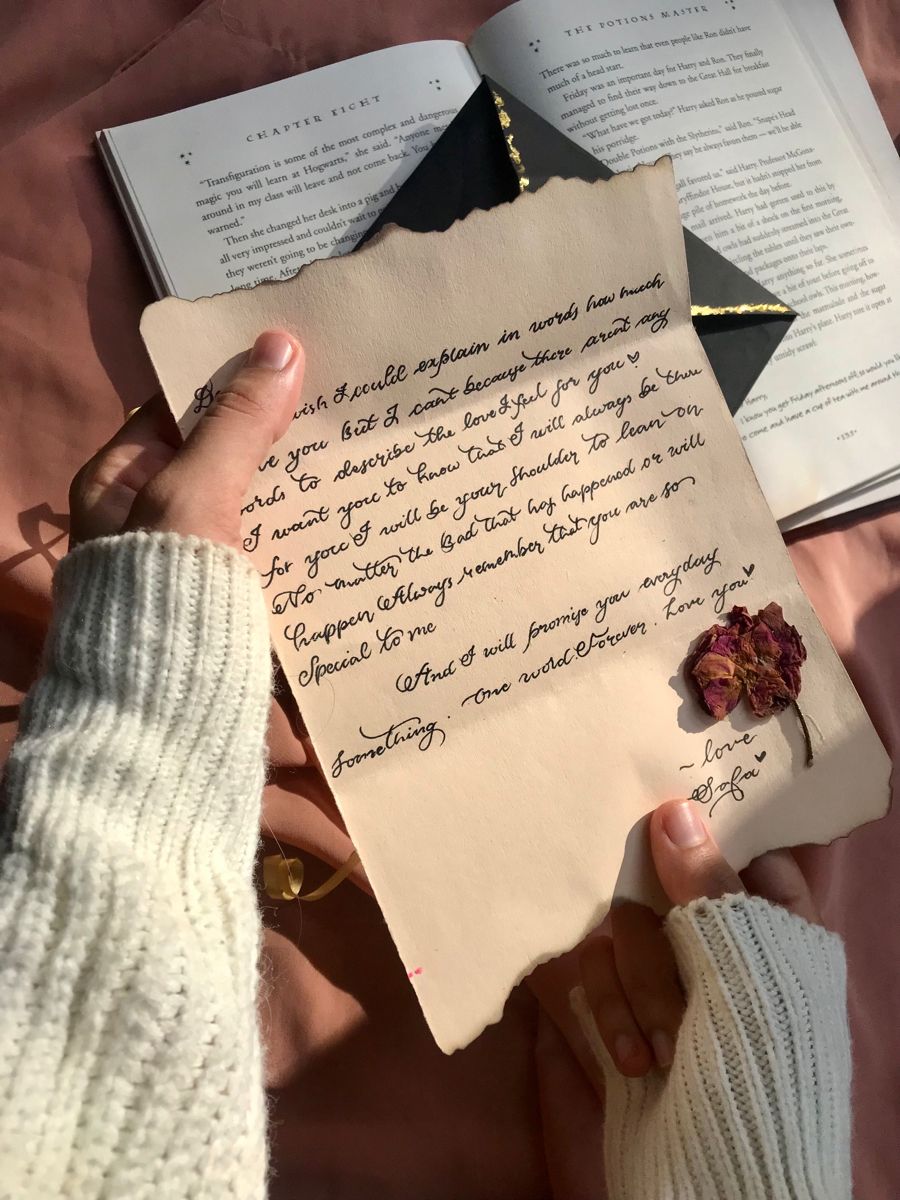 CHAPTER EIGHT
“Transfiguration is some of the most complex and dangerous
magic you will learn at Hogwarts,” she said. “Anyone
around in my class will leave and not come back. You
warned.”
Then she changed her desk into a pig and
all very impressed and couldn't wait to
they weren't going to be changing
long time.
THE POTIONS MASTER
There was so much to learn that even people like Ron didn't have
much of a head start.
Friday was an important day for Harry and Ron. They finally
managed to find their way down to the Great Hall for breakfast
without getting lost once.
“What have we got today?” Harry asked Ron as he poured sugar
his porridge.
Double Potions with the Slytherins,” said Ron. “Snape's Head
say he always favors them — we'll be able
favored us,” said Harry. Professor McGona-
Gryffindor House, but it hadn't stopped her from
pile of homework the day before.
mail arrived. Harry had gotten used to this by
him a bit of a shock on the first morning,
owls had suddenly streamed into the Great
circling the tables until they saw their own-
and packages onto their laps.
Harry anything so far. She sometimes
a bit of toast before going off to
school owls. This morning, how-
the marmalade and the sugar
Harry's plate. Harry tore it open at
untidy scrawl:
Harry,
I know you get Friday afternoons off, so would you like
come and have a cup of tea with me around
wish I could explain in words how much
ve you But I cant because there arent any
ords to describe the love I feel for you ♥
I want you to know that I will always be there
for you I will be your shoulder to lean on
No matter the Bad that has happened or will
happen Always remember that you are so
Special to me
And I will promise you everyday
Something. One word. Forever. Love you ♥
~ love
Safa ♥